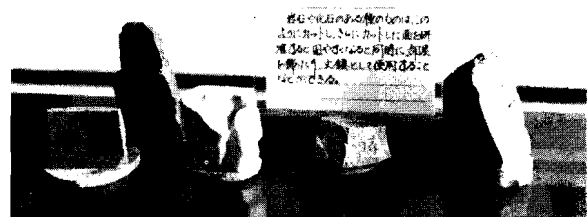 岩石や化石のある種のものは、この
ようにカットし、さらにカットした面を研
磨すると やすくなると同時に、部屋
を飾ったり、文鎮として使用すること
などができる。